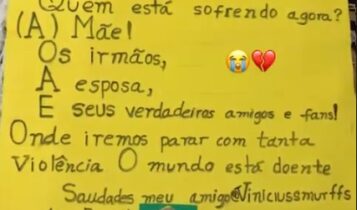 Quem está sofrendo agora?
(A) Mãe!
Os irmãos,
A esposa,
E seus verdadeiros amigos e fans!
Onde iremos parar com tanta
Violência O mundo está doente
Saudades meu amigo@Viniciussmurffs